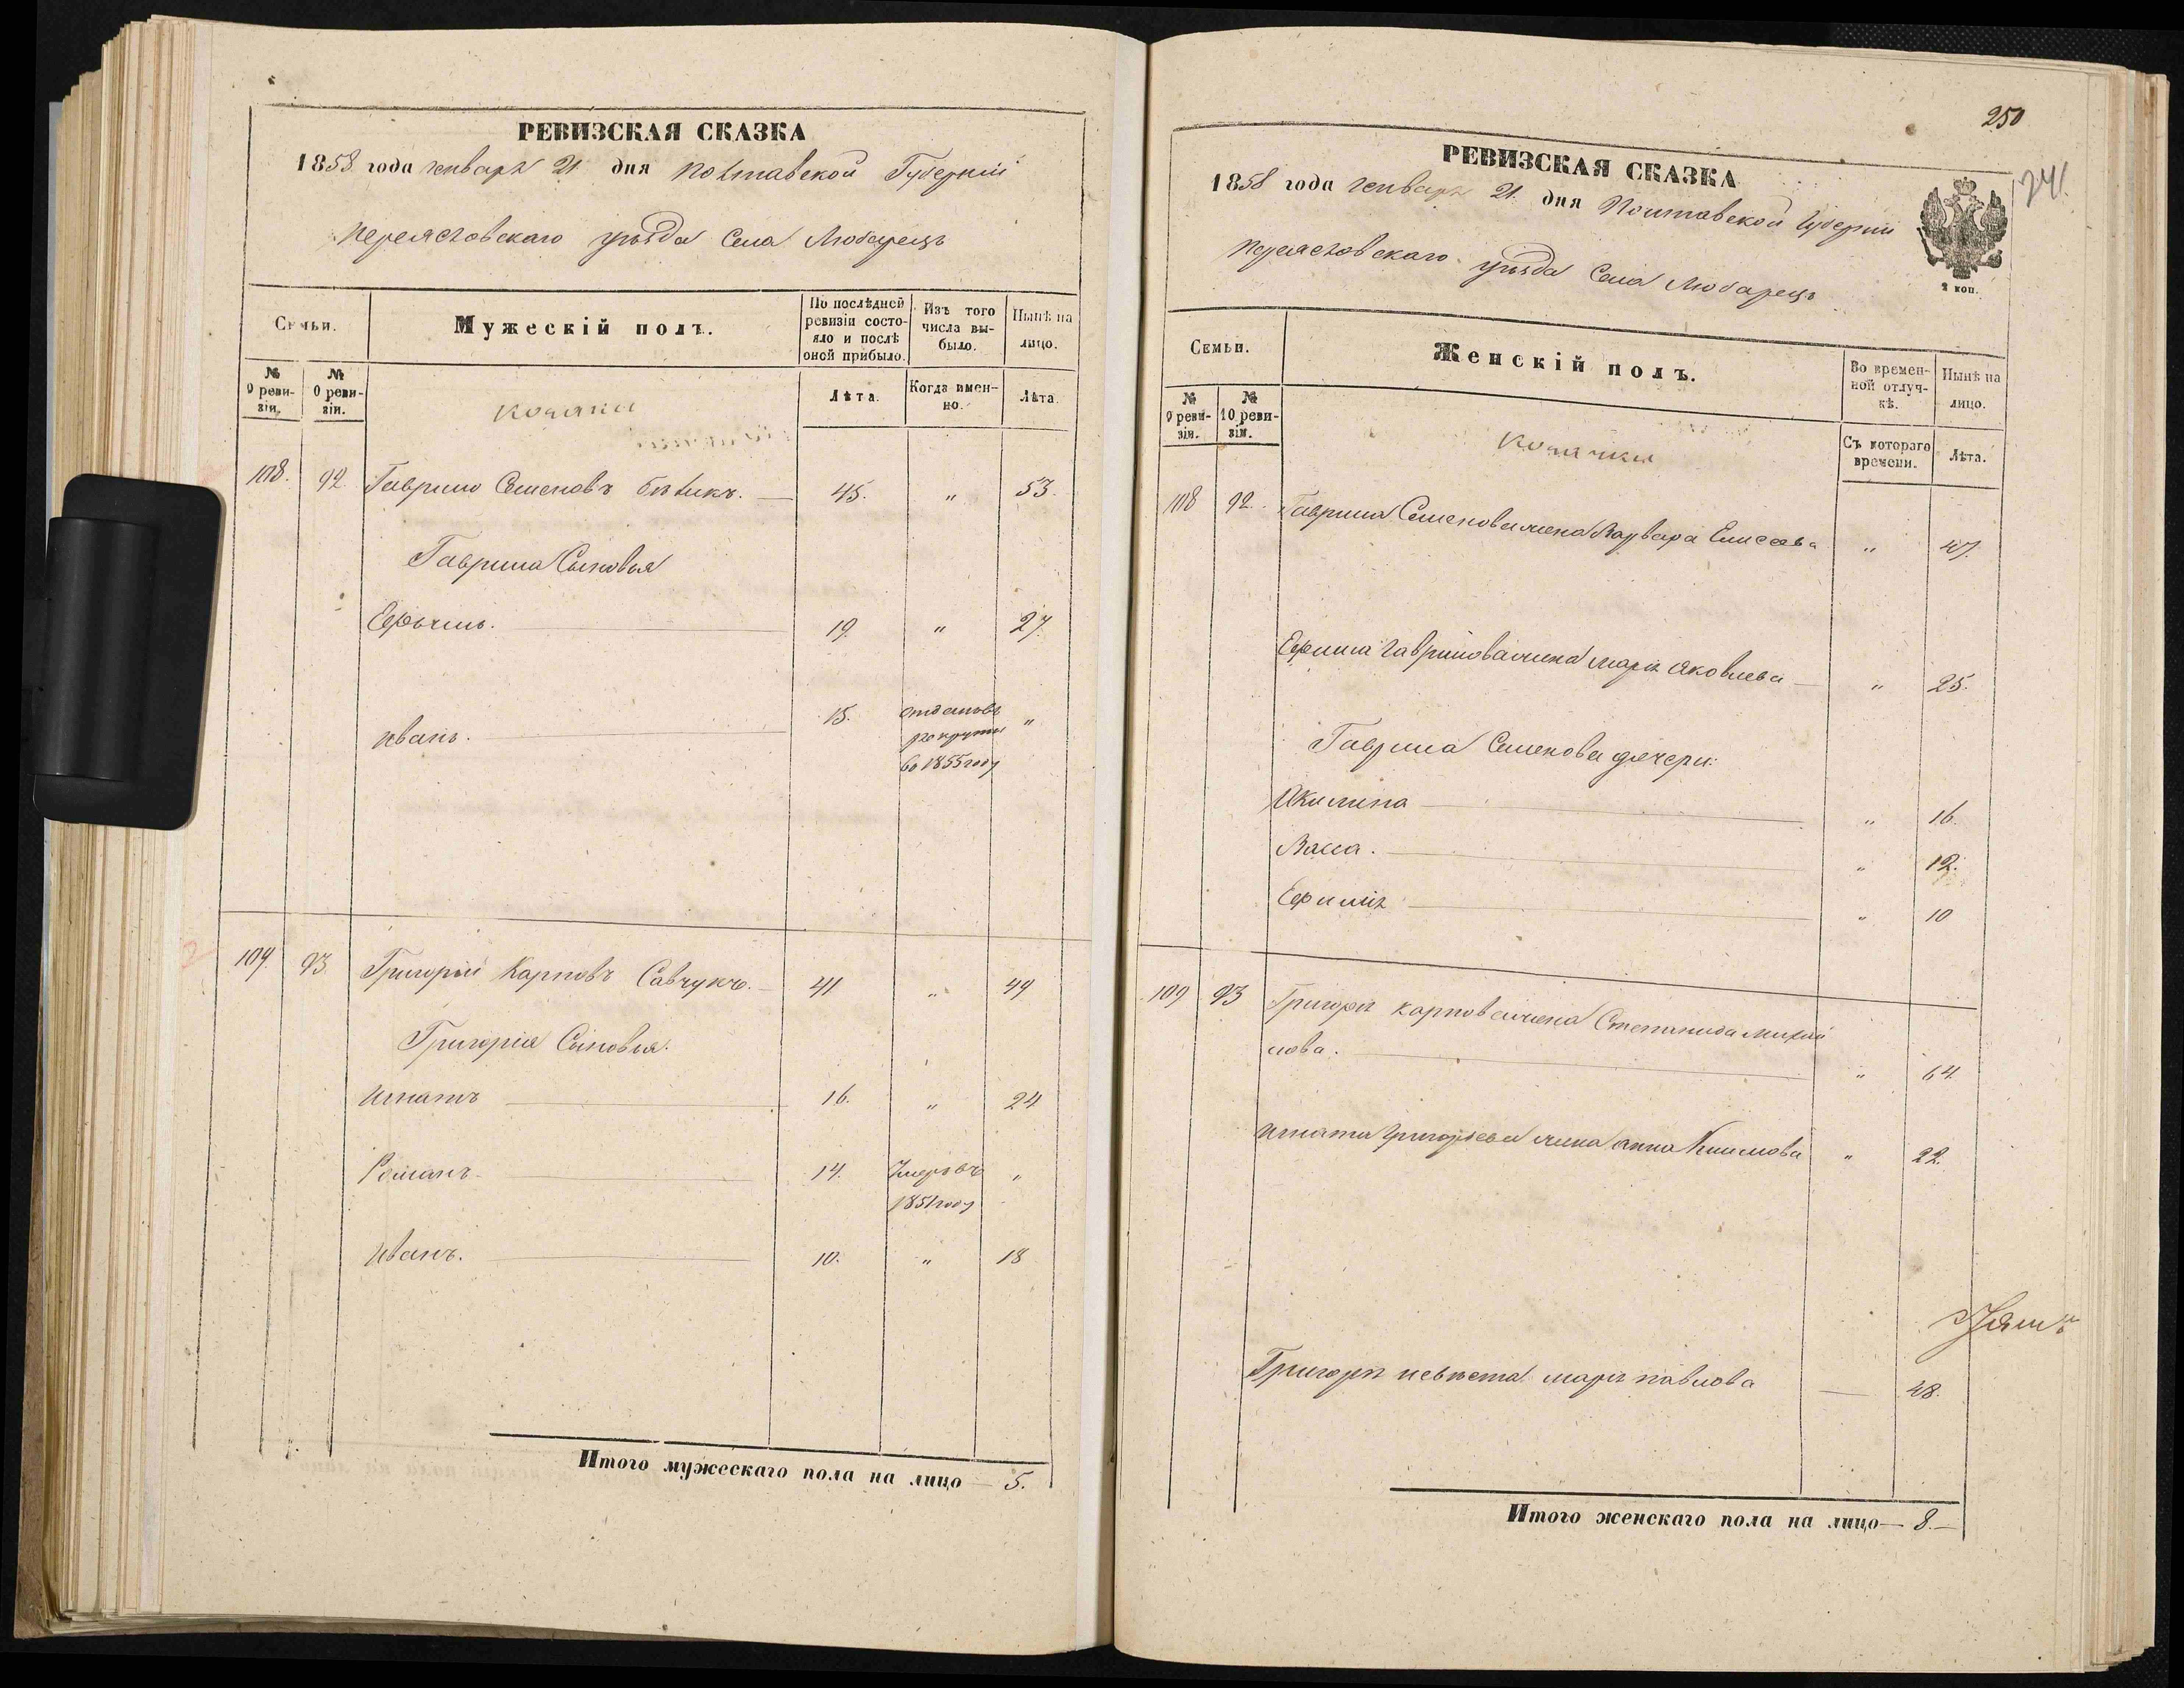 РЕВИЗСКАЯ СКАЗКА
1858 года генваря 21 дня Полтавской Губерніи
Переясловскаго уѣзда Села Любарецъ
Семьи.
Мужескій полъ.
По послѣдней ревизіи состояло и послѣ оной прибыло.
Изъ того числа выбыло.
Нынѣ на лицо.
№ 9 ревизіи.
№ 0 ревизіи.
Козаки
Лѣта.
Когда именно.
Лѣта.
108. 92. Гаврило Семеновъ 45. " 53.
Гаврила Сыновья
Ефымъ. 19. " 27.
Иванъ. 15. отдановъ рокруты во 1855 году "
109. 93. Григорій Карповъ Савчукъ. 41 " 49
Григорія Сыновья.
Игнатъ 16. " 24
Романъ 14. Умеръ въ 1851 году "
Иванъ. 10. " 18
Итого мужескаго пола на лицо — 5.
250
241.
РЕВИЗСКАЯ СКАЗКА
1858 года генваря 21. дня Полтавской Губерніи
Переясловскаго уѣзда Села Любарецъ
2 коп.
Семьи.
Женскій полъ.
Во временной отлучкѣ.
Нынѣ на лицо.
№ 9 ревизіи.
№ 10 ревизіи.
Козачки
Съ котораго времени.
Лѣта.
108 92. Гаврила Семенова жена Варвара Елисеева " 47.
Ефима Гаврилова жена марія Яковлева " 25.
Гаврила Семенова дочери:
Акилина " 16.
Васса. " 12.
Ефимія " 10
109 93 Григорія карпова жена Степанида михай
лова. " 64
Игната Григорьева жена анна Климова " 22.
Григорія невѣста марія павлова — 48.
Итого женскаго пола на лицо — 8. —